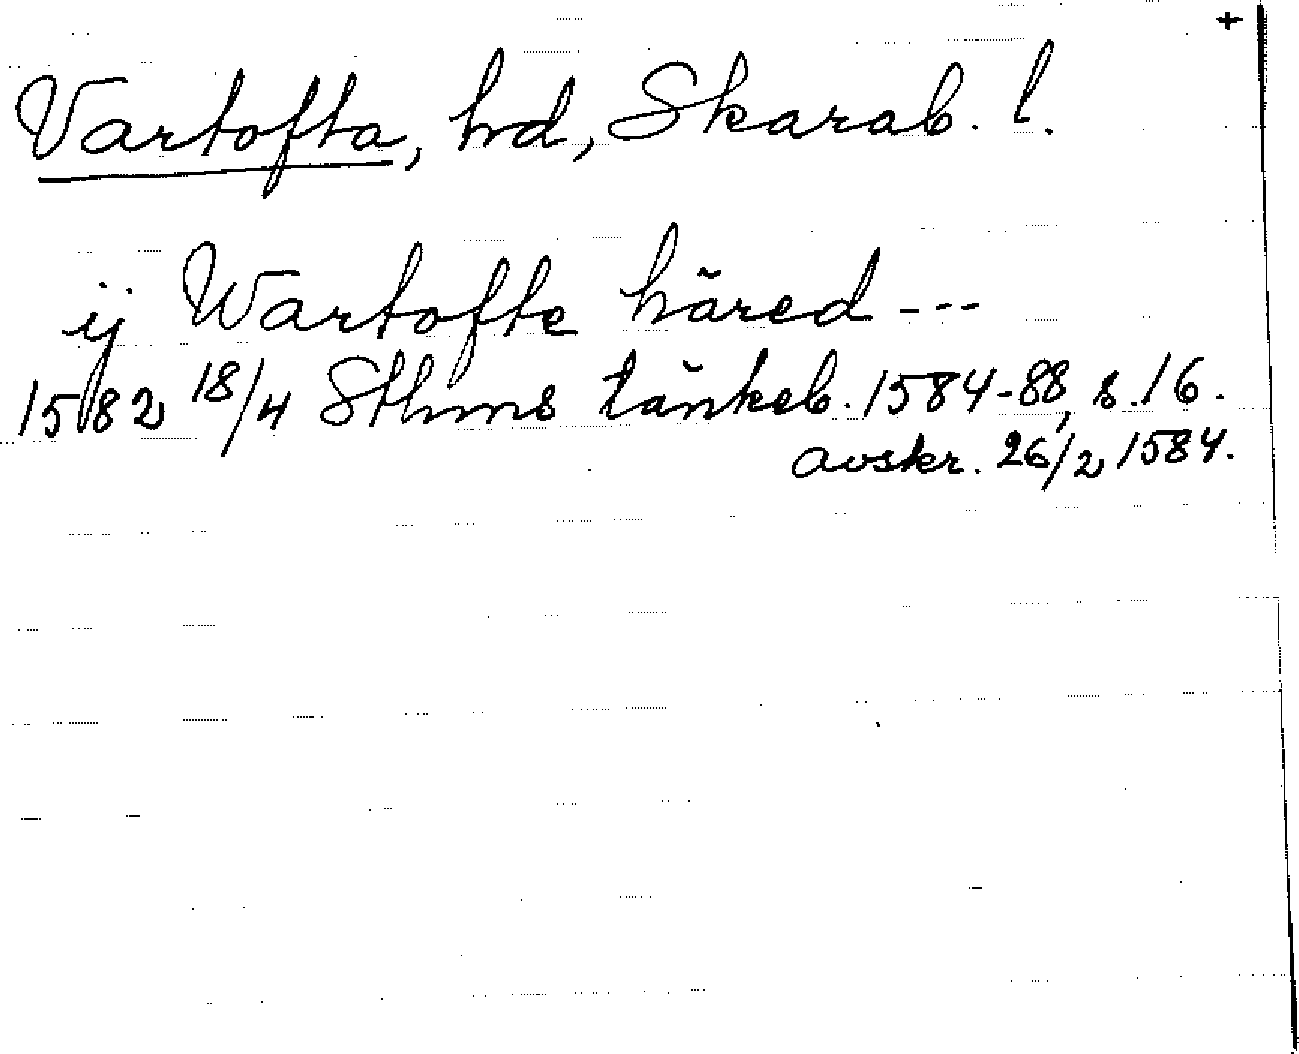 +
Vartofta, hd, Skarab. l.
ij Wartofte häred ---
1582 18/4 Sthms tänkeb. 1584-88, s. 16.
avskr. 26/2 1584.